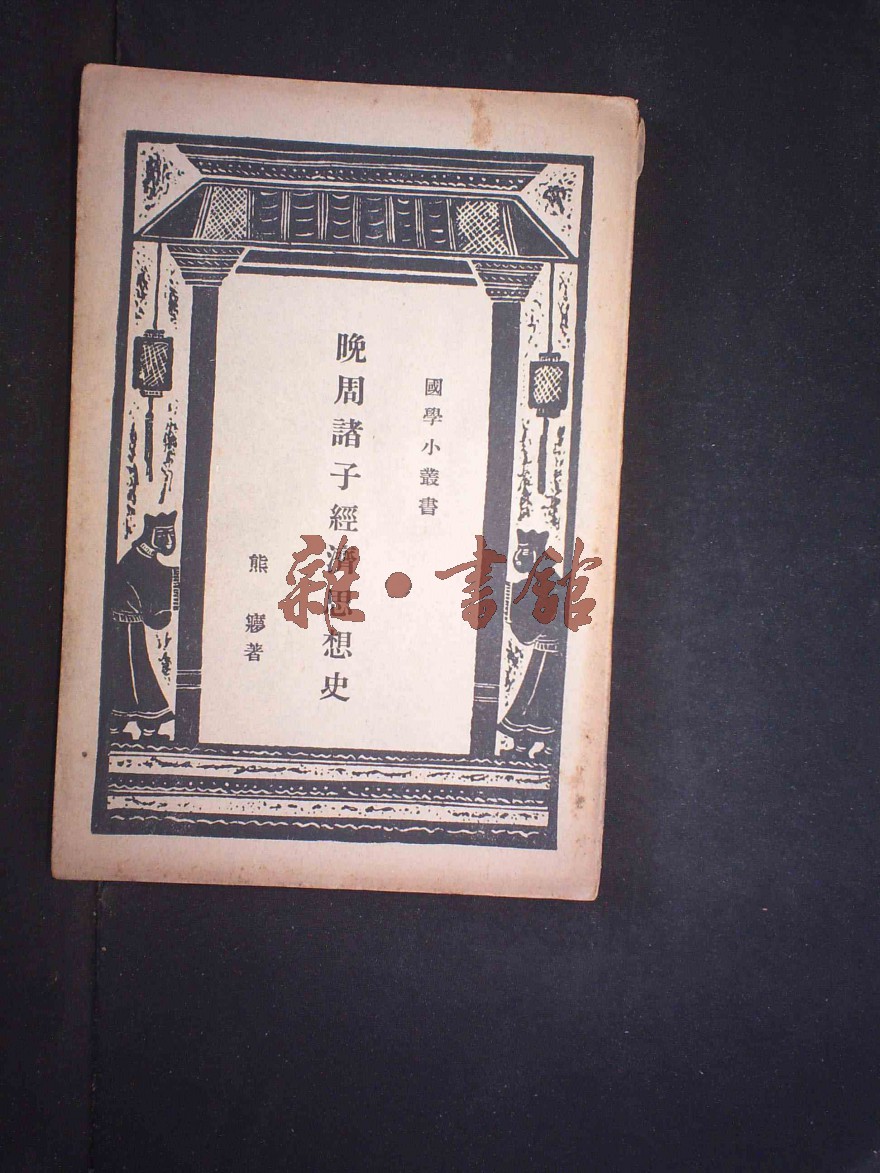 國學小叢書
晚周諸子經濟思想史
熊㝱著
雜·書館